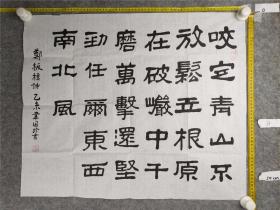 咬定青山不
放鬆立根原
在破巖中千
磨萬擊還堅
勁任爾東西
南北風
鄭板橋詩乙未書